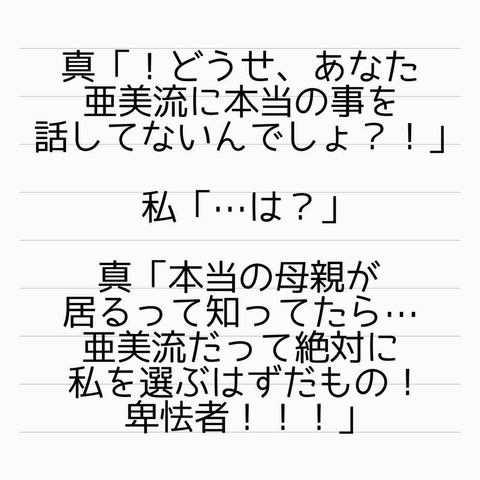 真「！どうせ、あなた
亜美流に本当の事を
話してないんでしょ？！」
私「…は？」
真「本当の母親が
居るって知ってたら…
亜美流だって絶対に
私を選ぶはずだもの！
卑怯者！！！」